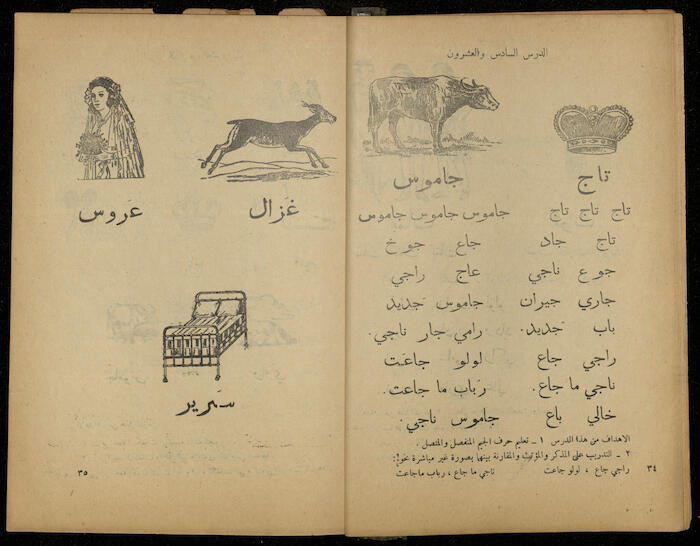 الدرس السادس والعشرون
تاج جاموس
تاج تاج تاج جاموس جاموس جاموس
تاج جاد جاع جوخ
جوع ناجي عاج راجي
جاري جيران جاموس جَديد
باب جَديد. رامي جار ناجي.
راجي جاع لولو جاعَت
ناجي ما جاع. رَباب ما جاعت.
خالي باع جاموس ناجي.
الاهداف من هذا الدرس ١ ـ تعليم حرف الجيم المنفصل والمتصل.
٢ ـ التدريب على المذكر والمؤنث والمقارنة بينهما بصورة غير مباشرة نحو:
راجي جاع ، لولو جاعت ناجي ما جاع ، رباب ماجاعت
٣٤
غَزال عَروس
سَرير
٣٥